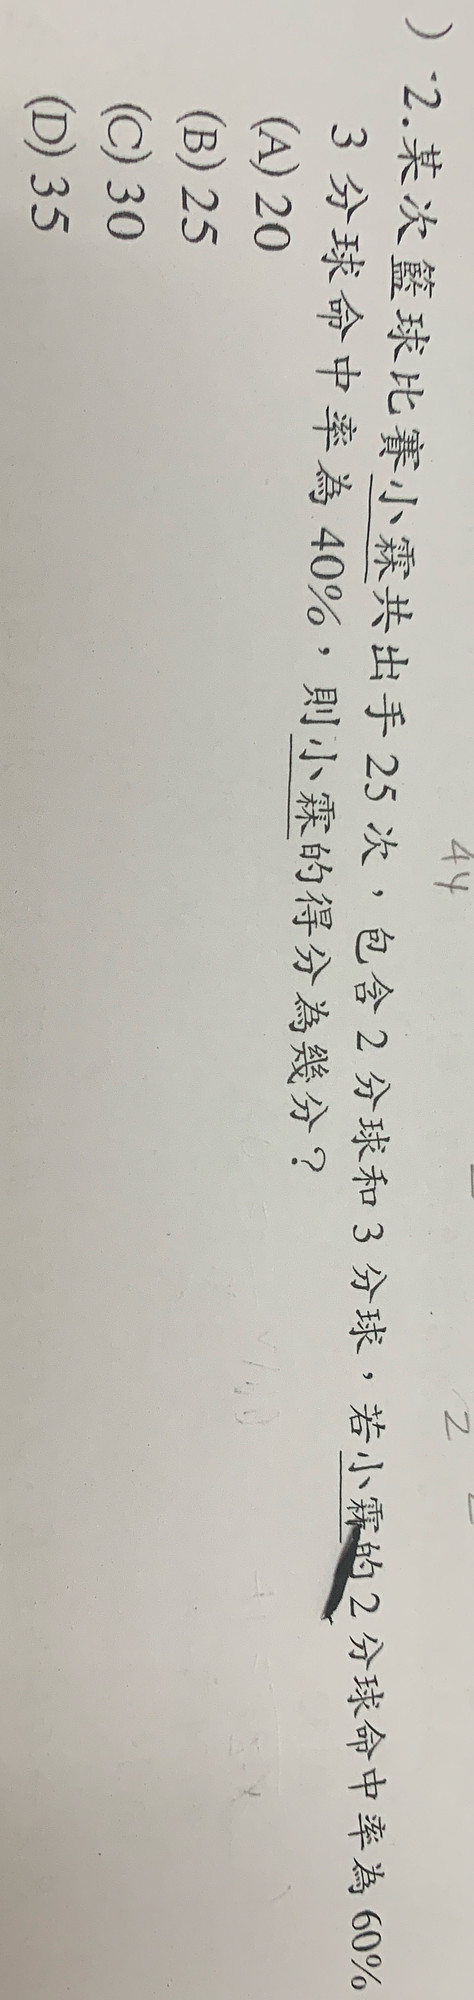 ) 2.某次籃球比賽小霖共出手25次，包含2分球和3分球，若小霖的2分球命中率為60%
3分球命中率為40%，則小霖的得分為幾分？
(A) 20
(B) 25
(C) 30
(D) 35
44
2